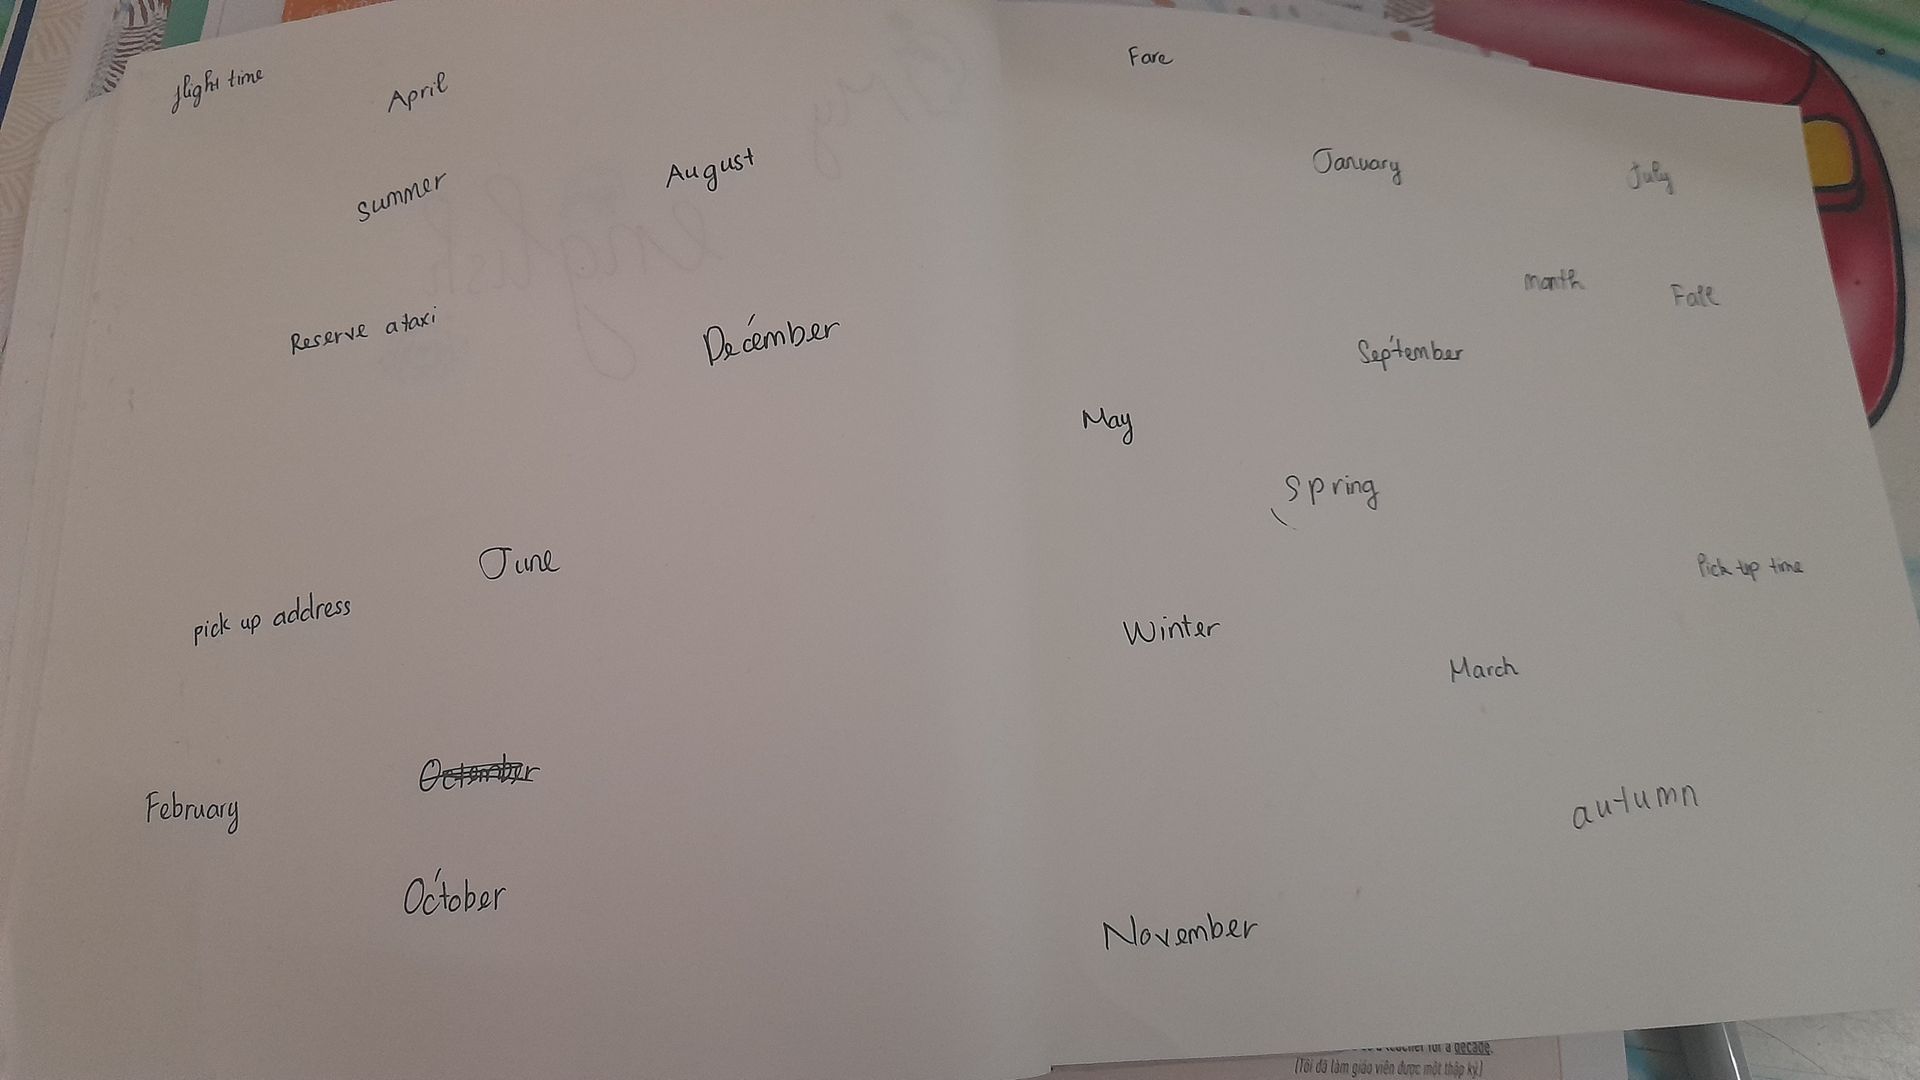 flight time
April
summer
August
Reserve a taxi
De'cember
June
pick up address
February
October
Fare
January
July
month
Fall
Sep'tember
May
Spring
Pick up time
Winter
March
autumn
November
for a decade.
(Tôi đã làm giáo viên được một thập kỷ.)